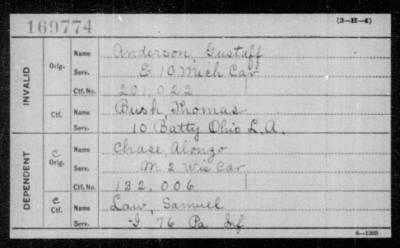 169774
(3-H-4)
INVALID
Orig.
Name Anderson, Gustaff
Serv. E 10 Mich Cav
Ctf. No. 201,022
Ctf.
Name Bush, Thomas
Serv. 10 Batty Ohio L.A.
DEPENDENT
C Orig.
Name Chase, Alonzo
Serv. M 2 Wis Cav
Ctf. No. 132,006
C Ctf.
Name Law, Samuel
Serv. I 76 Pa Inf